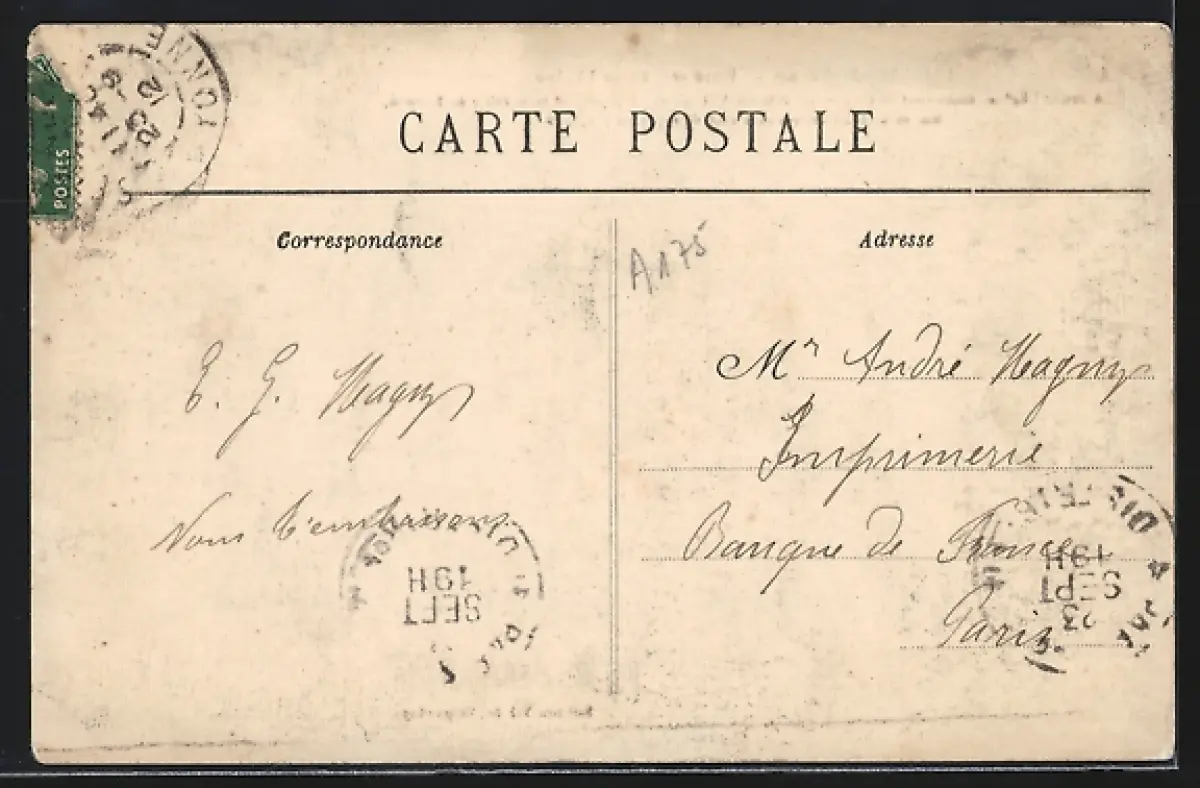 CARTE POSTALE
Correspondance
Adresse
POSTES
A 175
E. G. Magny
Nous t'embrassons
Mr André Magny
Imprimerie
Banque de France
Paris
19H
SEPT
23
19H
SEPT